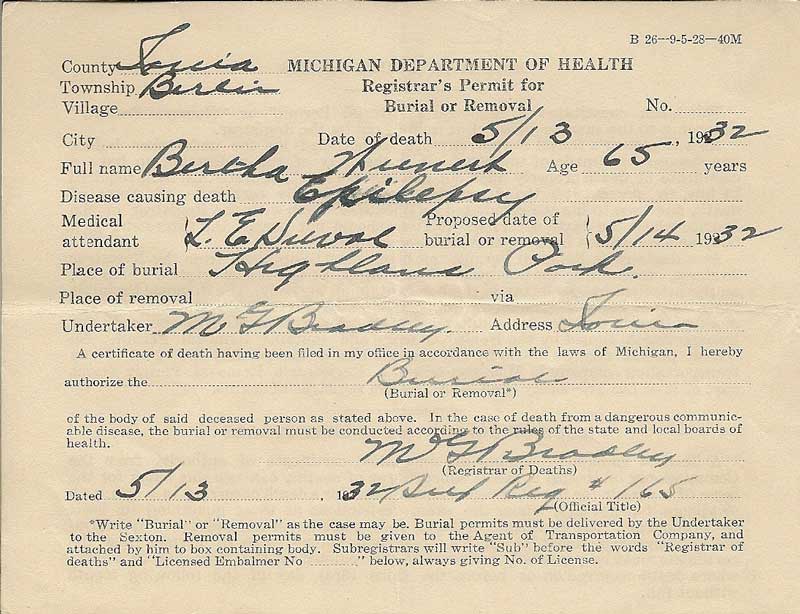 B 26—9-5-28—40M
County Ionia MICHIGAN DEPARTMENT OF HEALTH
Township Berlin Registrar's Permit for
Village Burial or Removal No.
City Date of death 5/13, 1932
Full name Bertha Age 65 years
Disease causing death Epilepsy
Medical attendant L. E. Duval Proposed date of burial or removal 5/14 1932
Place of burial Highland Park.
Place of removal via
Undertaker M G Bradley. Address Ionia
A certificate of death having been filed in my office in accordance with the laws of Michigan, I hereby
authorize the Burial
(Burial or Removal*)
of the body of said deceased person as stated above. In the case of death from a dangerous communic-
able disease, the burial or removal must be conducted according to the rules of the state and local boards of
health.
M G Bradley
(Registrar of Deaths)
Dated 5/13, 1932 Sub Reg # 165
(Official Title)
*Write "Burial" or "Removal" as the case may be. Burial permits must be delivered by the Undertaker
to the Sexton. Removal permits must be given to the Agent of Transportation Company, and
attached by him to box containing body. Subregistrars will write "Sub" before the words "Registrar of
deaths" and "Licensed Embalmer No ........" below, always giving No. of License.